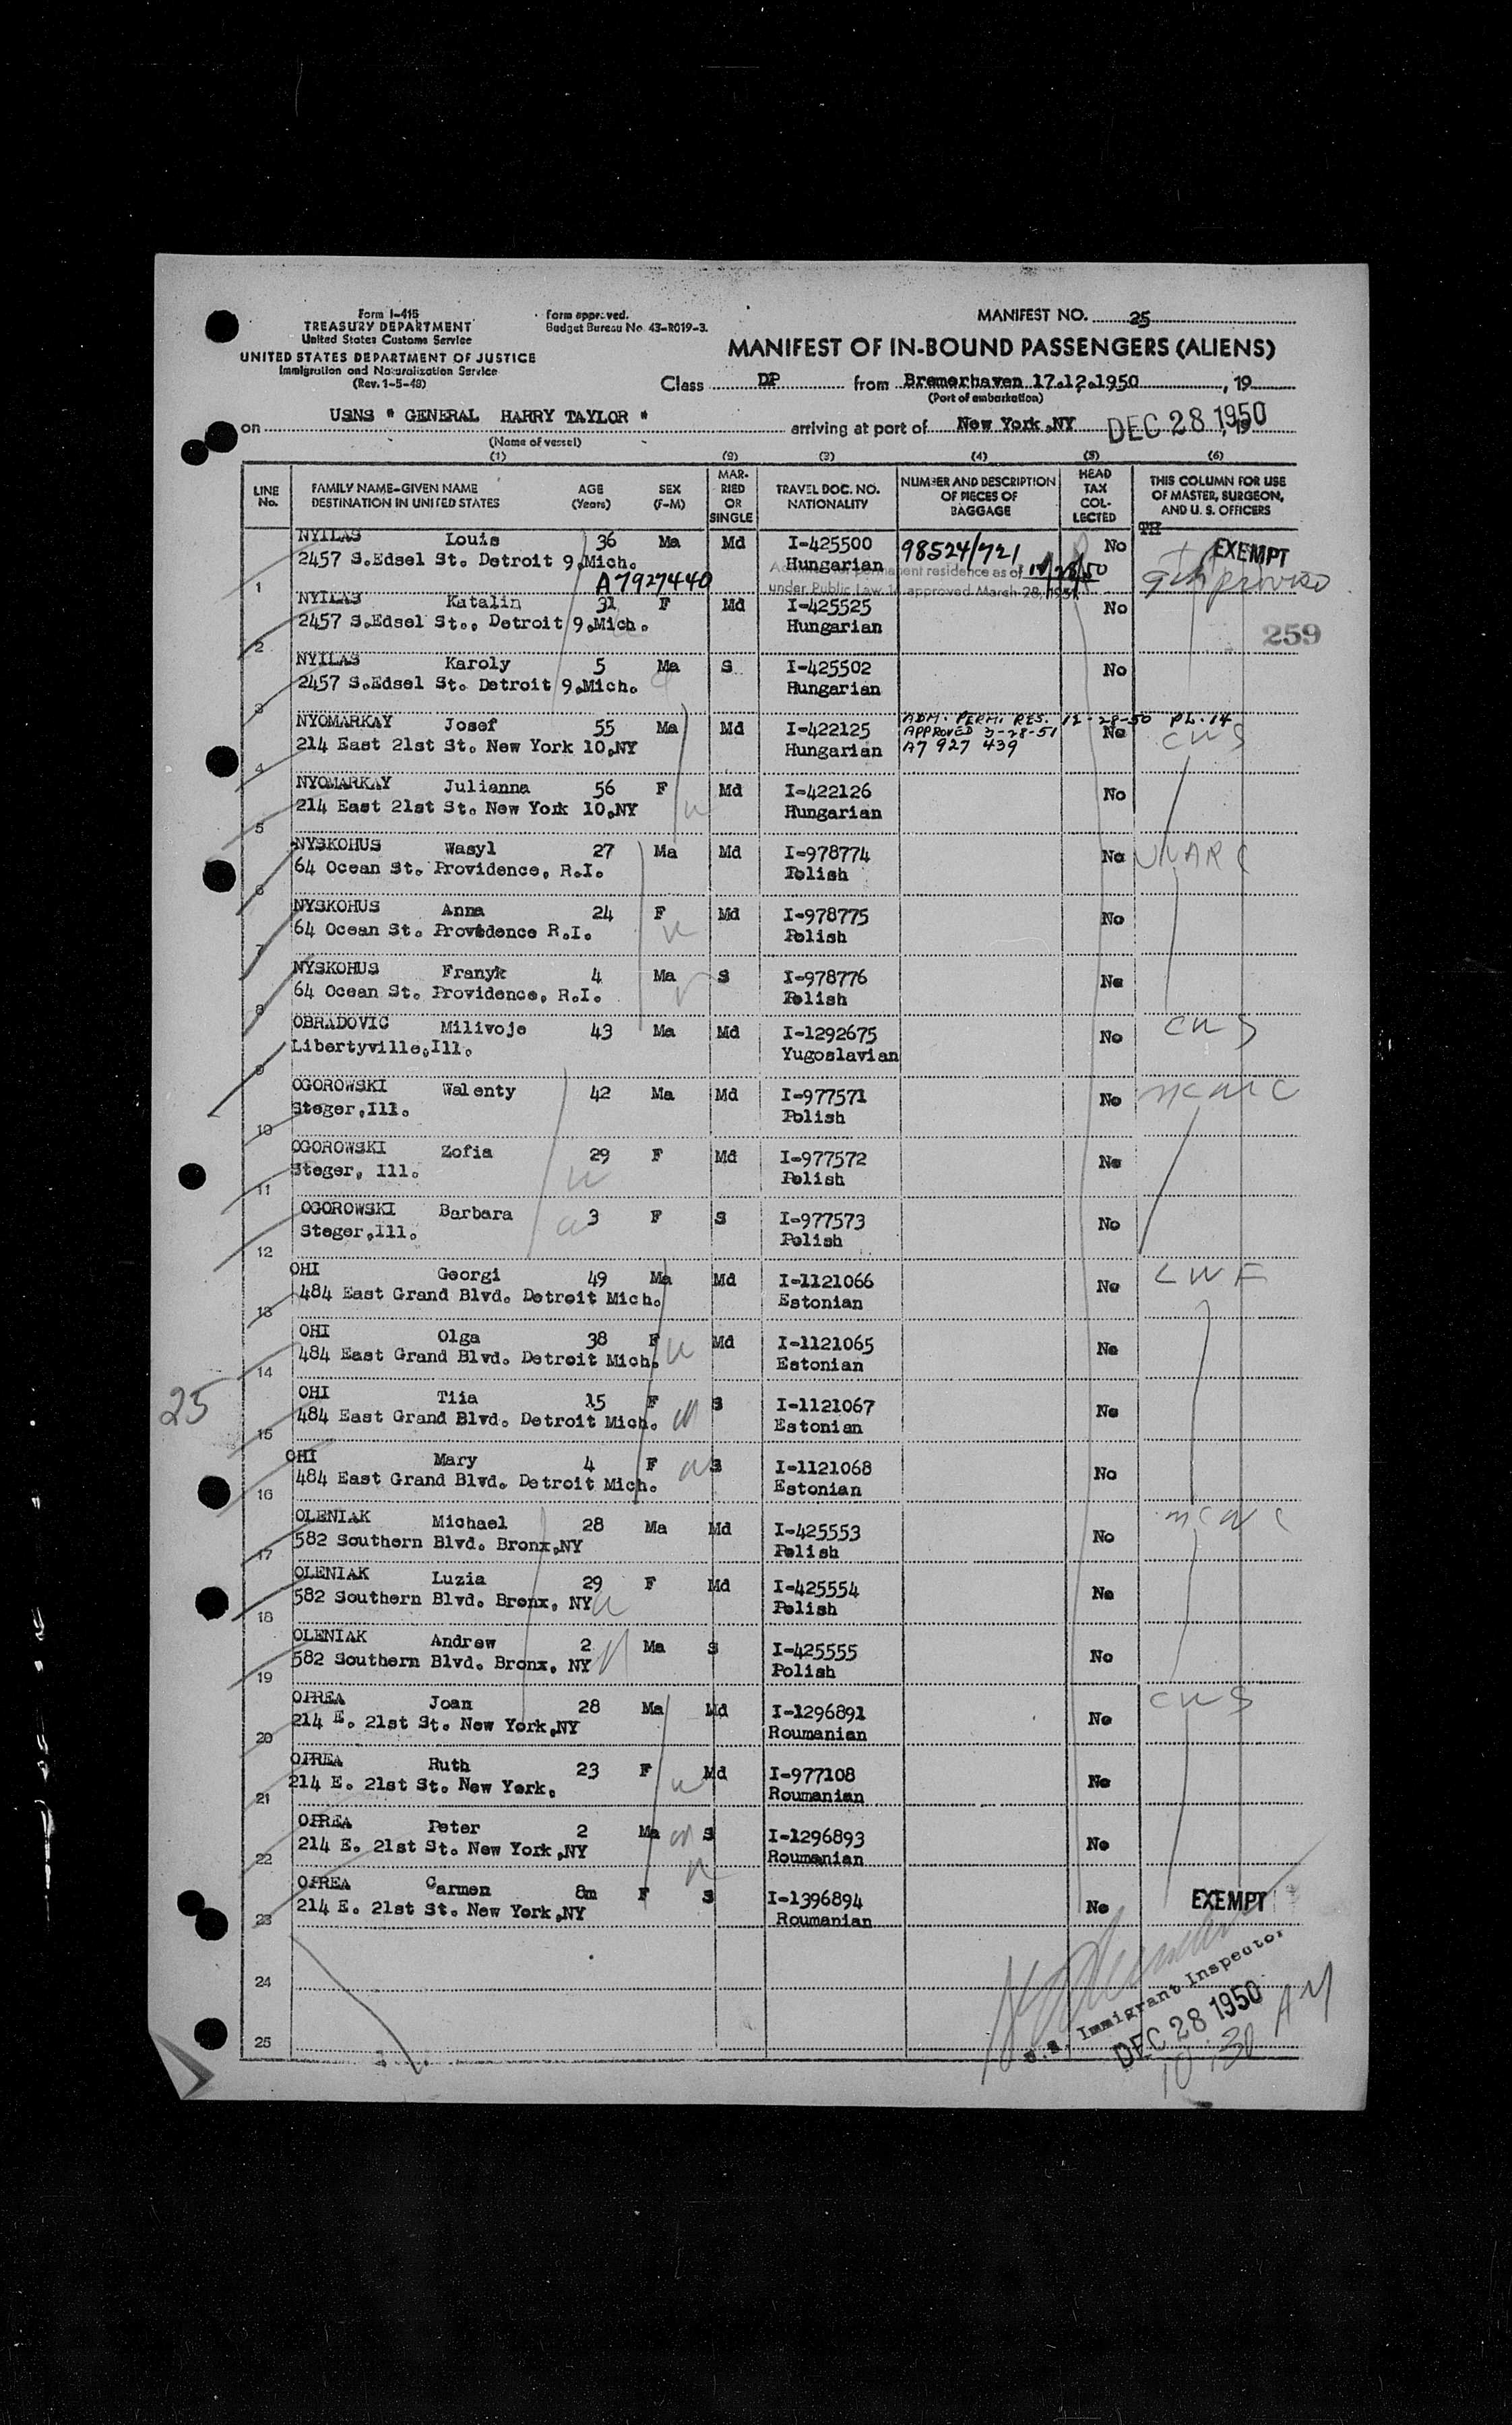 Form I-415
TREASURY DEPARTMENT
United States Customs Service
UNITED STATES DEPARTMENT OF JUSTICE
Immigration and Naturalization Service
(Rev. 1-5-48)
Form approved.
Budget Bureau No. 43-R019-3.
MANIFEST NO. 25
MANIFEST OF IN-BOUND PASSENGERS (ALIENS)
Class DP from Bremerhaven 17.12.1950, 19
(Port of embarkation)
on USNS " GENERAL HARRY TAYLOR " arriving at port of New York,NY DEC 28 1950, 19
(Name of vessel)
(1) (2) (3) (4) (5) (6)
LINE No. FAMILY NAME-GIVEN NAME DESTINATION IN UNITED STATES AGE (Years) SEX (F-M) MAR-RIED OR SINGLE TRAVEL DOC. NO. NATIONALITY NUMBER AND DESCRIPTION OF PIECES OF BAGGAGE HEAD TAX COL-LECTED THIS COLUMN FOR USE OF MASTER, SURGEON, AND U. S. OFFICERS
NYILAS Louis 36 Ma Md I-425500 98524/721 No EXEMPT
2457 S.Edsel St. Detroit 9,Mich. Hungarian permanent residence as of 12/28/50 9th proviso
1 A7927440 under Public Law 14 approved March 28, 1951
NYILAS Katalin 31 F Md I-425525 No
2457 S.Edsel St., Detroit 9,Mich. Hungarian 259
2
NYILAS Karoly 5 Ma S I-425502 No
2457 S.Edsel St. Detroit 9,Mich. Hungarian
3
NYOMARKAY Josef 55 Ma Md I-422125 ADM. PERM. RES. 12-28-50 PL.14 No
APPROVED 3-28-51 CWS
214 East 21st St. New York 10,NY Hungarian A7 927 439
4
NYOMARKAY Julianna 56 F Md I-422126 No
214 East 21st St. New York 10,NY Hungarian
5
NYSKOHUS Wasyl 27 Ma Md I-978774 No
64 Ocean St. Providence, R.I. Polish
6
NYSKOHUS Anna 24 F Md I-978775 No
64 Ocean St. Providence R.I. Polish
7
NYSKOHUS Franyk 4 Ma S I-978776 No
64 Ocean St. Providence, R.I. Polish
8
OBRADOVIC Milivoje 43 Ma Md I-1292675 No CWS
Libertyville,Ill. Yugoslavian
9
OGOROWSKI Walenty 42 Ma Md I-977571 No NCWC
Steger,Ill. Polish
10
OGOROWSKI Zofia 29 F Md I-977572 No
Steger, Ill. Polish
11
OGOROWSKI Barbara 3 F S I-977573 No
Steger,Ill. Polish
12
OHI Georgi 49 Ma Md I-1121066 No
484 East Grand Blvd. Detroit Mich. Estonian
13
OHI Olga 38 F Md I-1121065 No
484 East Grand Blvd. Detroit Mich. Estonian
14
25
OHI Tiia 15 F S I-1121067 No
484 East Grand Blvd. Detroit Mich. Estonian
15
OHI Mary 4 F S I-1121068 No
484 East Grand Blvd. Detroit Mich. Estonian
16
OLENIAK Michael 28 Ma Md I-425553 No NCWC
582 Southern Blvd. Bronx,NY Polish
17
OLENIAK Luzia 29 F Md I-425554 No
582 Southern Blvd. Bronx, NY Polish
18
OLENIAK Andrew 2 Ma S I-425555 No
582 Southern Blvd. Bronx, NY Polish
19
OPREA Joan 28 Ma Md I-1296891 No CWS
214 E. 21st St. New York,NY Roumanian
20
OPREA Ruth 23 F Md I-977108 No
214 E. 21st St. New York. Roumanian
21
OPREA Peter 2 Ma S I-1296893 No
214 E. 21st St. New York,NY Roumanian
22
OPREA Carmen 8m F S I-1396894 No EXEMPT
214 E. 21st St. New York,NY Roumanian
23
24
U.S. Immigrant Inspector
DEC 28 1950
10:30 AM
25